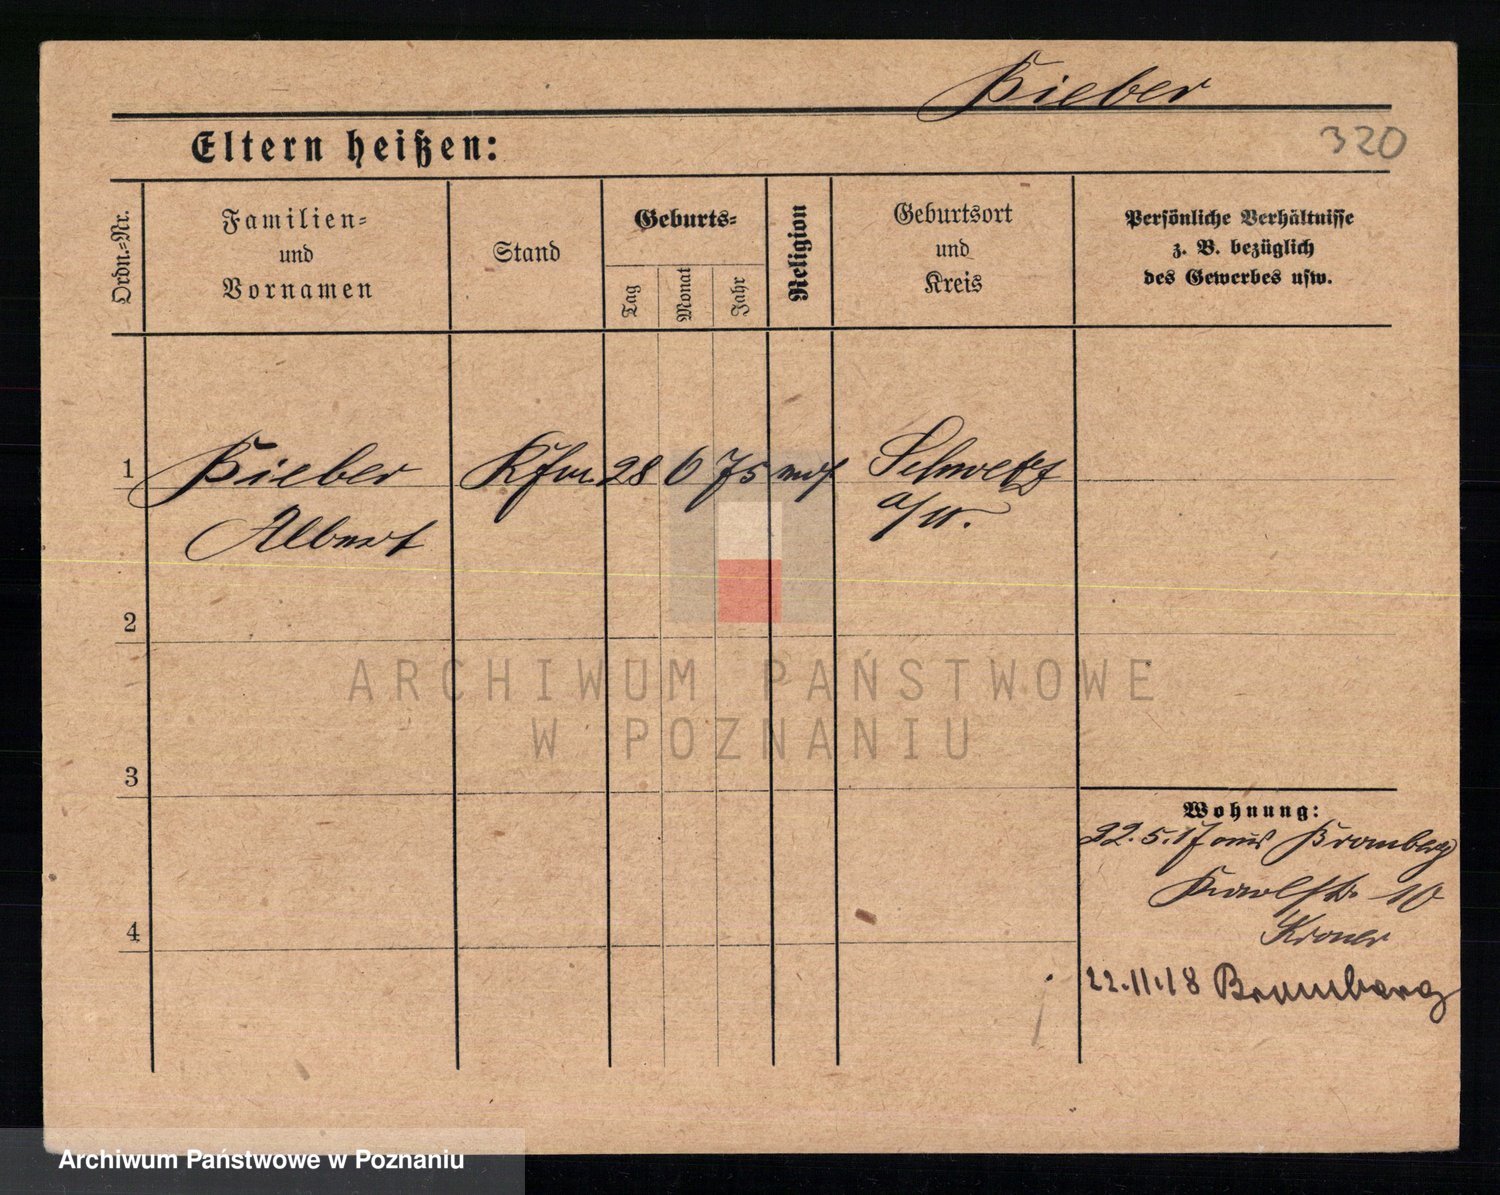 Bieber
320
Eltern heißen:
Ordn.-Nr.
Familien-
und
Vornamen
Stand
Geburts-
Tag
Monat
Jahr
Religion
Geburtsort
und
Kreis
Persönliche Verhältnisse
z. B. bezüglich
des Gewerbes usw.
1
Bieber
Albert
Kfm
28
6
75
mos.
Schwetz
a/W.
2
3
4
Wohnung:
22.5.17 aus Bromberg
Karlstr. 10
22.11.18 Bromberg
ARCHIWUM PAŃSTWOWE
W POZNANIU
Archiwum Państwowe w Poznaniu